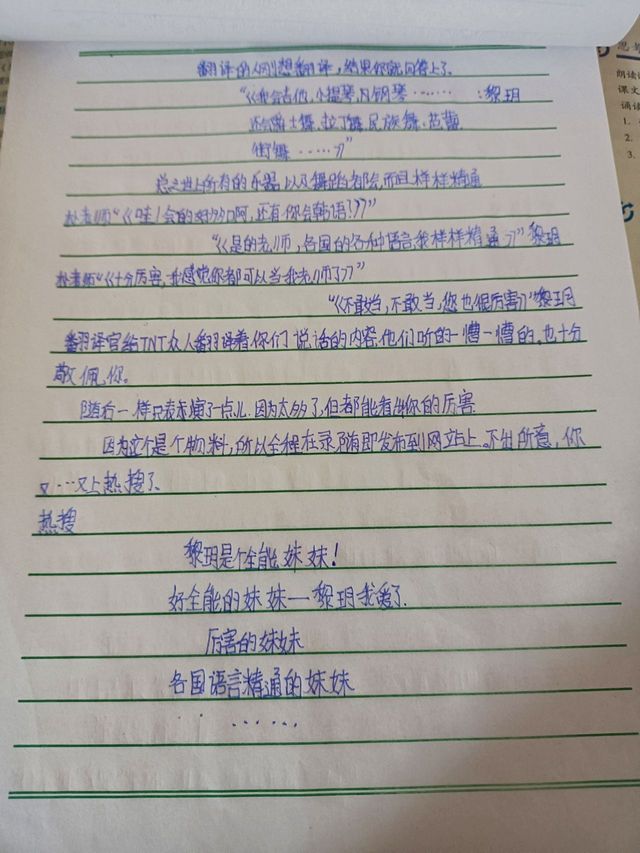 翻译的人刚想翻译，结果你就回答上了。
"《我会吉他、小提琴、钢琴…… ：黎玥
还会爵士舞、拉丁舞、民族舞、芭蕾、
街舞……》"
总之世上所有的乐器以及舞蹈都会而且样样精通
朴老师"《哇！会的好多啊，还有你会韩语！？》"
"《是的老师，各国的各种语言我样样精通》"黎玥
朴老师"《十分厉害，我感觉你都可以当我老师了》"
"《不敢当，不敢当，您也很厉害》"黎玥
翻译官给TNT众人翻译着你们说话的内容他们听的一懵一懵的。也十分
敬佩你。
随后一样只表演了一点儿、因为太多了，但都能看出你的厉害
因为这个是个物料，所以全程在录随即发布到网站上。不出所意，你
又…又上热搜了、
热搜
黎玥是个全能妹妹！
好全能的妹妹——黎玥我爱了.
厉害的妹妹
各国语言精通的妹妹
……
朗读
课文
诵读
1.
2.
3.